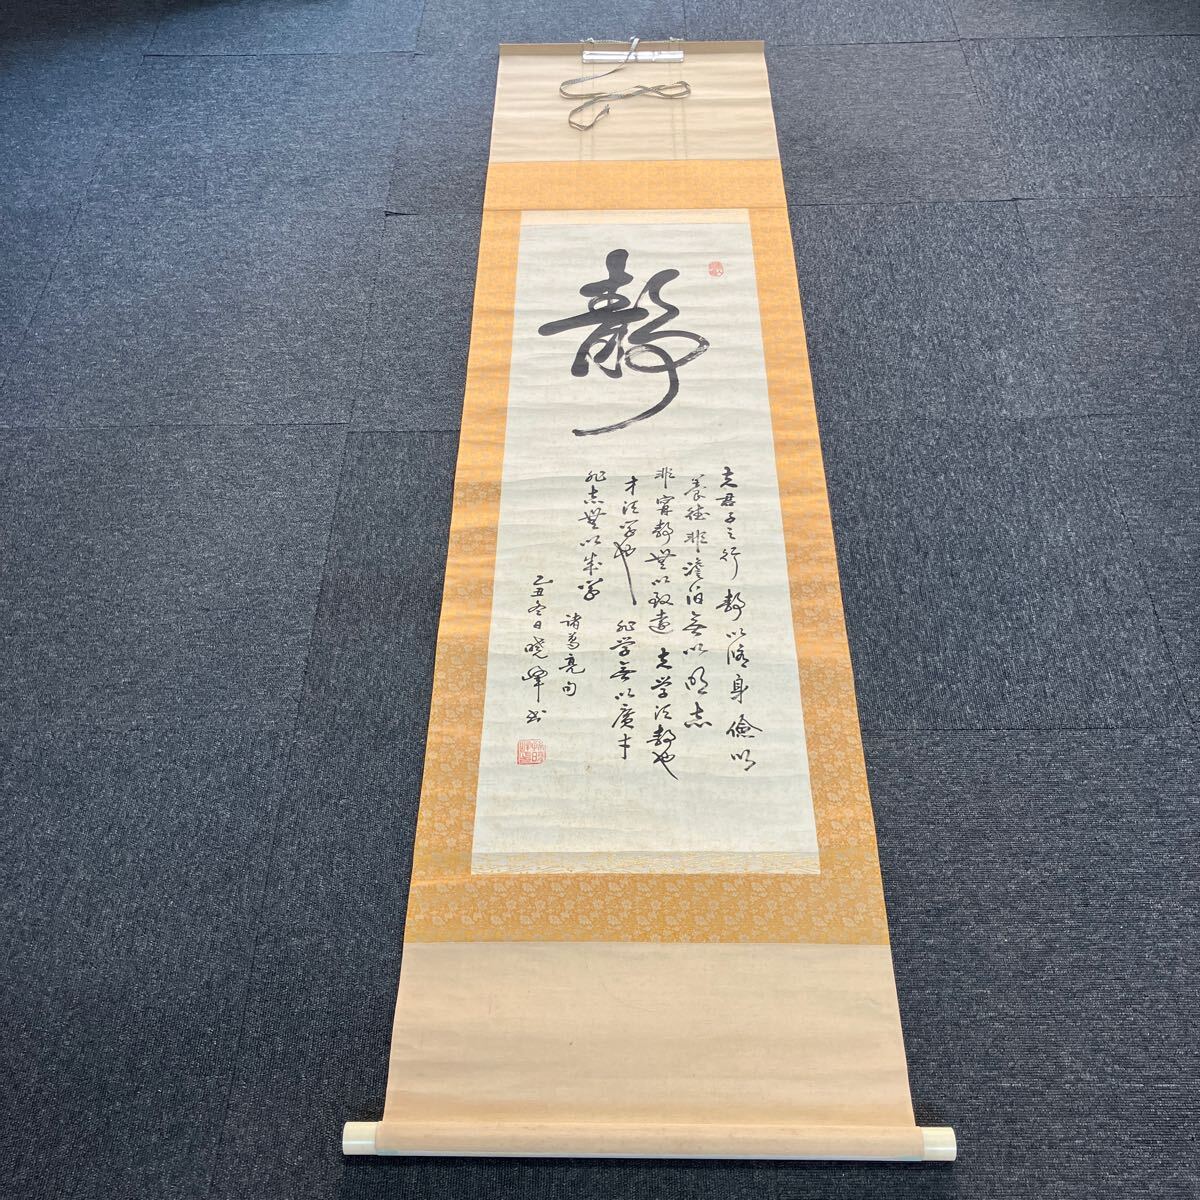 靜
夫君子之行 靜以修身 儉以
養德 非澹泊無以明志
非寧靜無以致遠 夫学須靜也
才須学也 非学無以廣才
非志無以成学
諸葛亮句
乙丑冬日 曉峰书